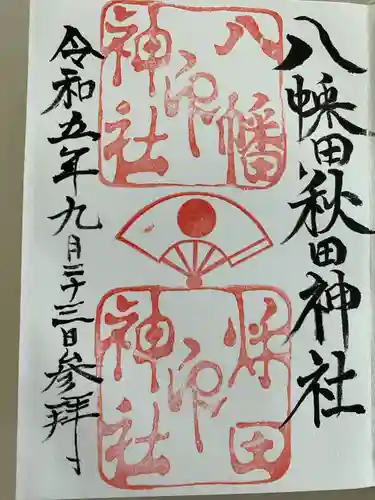 八幡秋田神社
八幡
神社
印
秋田
神社
印
令和五年九月二十三日参拝